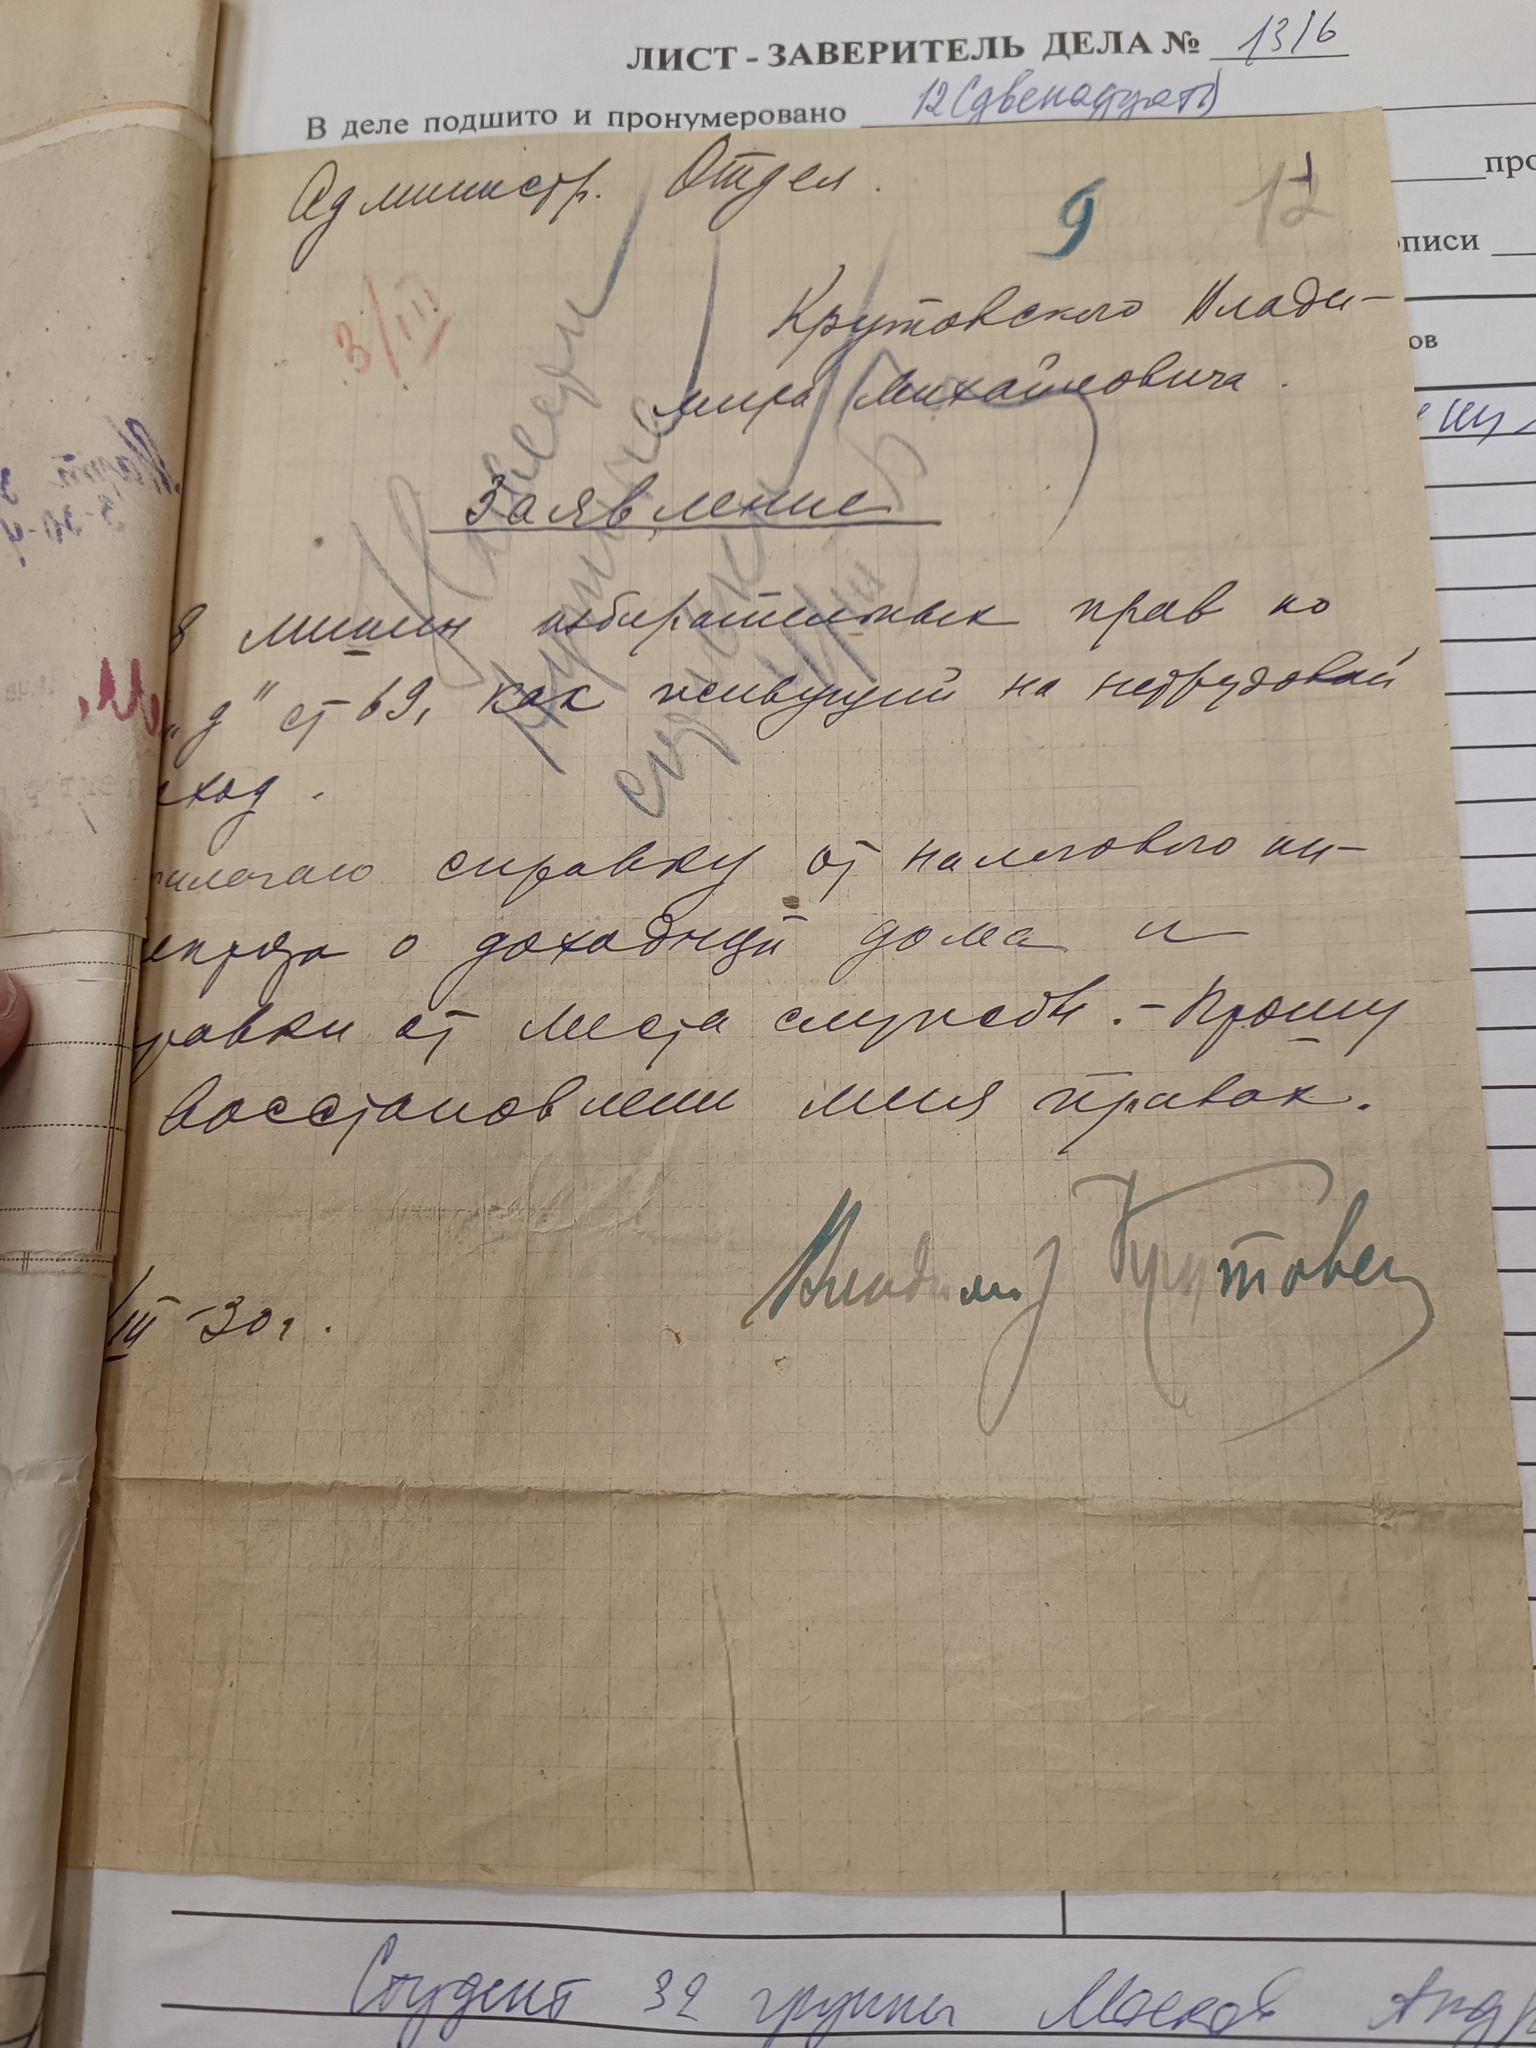 ЛИСТ - ЗАВЕРИТЕЛЬ ДЕЛА № 1316
В деле подшито и пронумеровано 12 (двенадцать)
про
описи
ов
Администр. Отдел.
9
12
3/III
Крутовского Влади-
мира Михайловича.
Заявление
Я лишен избирательных прав по
"д" ст 69, как живущий на нетрудовой
ход.
прилагаю справку от налогового ин-
спектора о доходности дома и
равки от места службы. - Прошу
восстановлении меня правах.
Владимир Крутовск
/III -30 г.
Навести
справки
Студент 32 группы Москов Анд